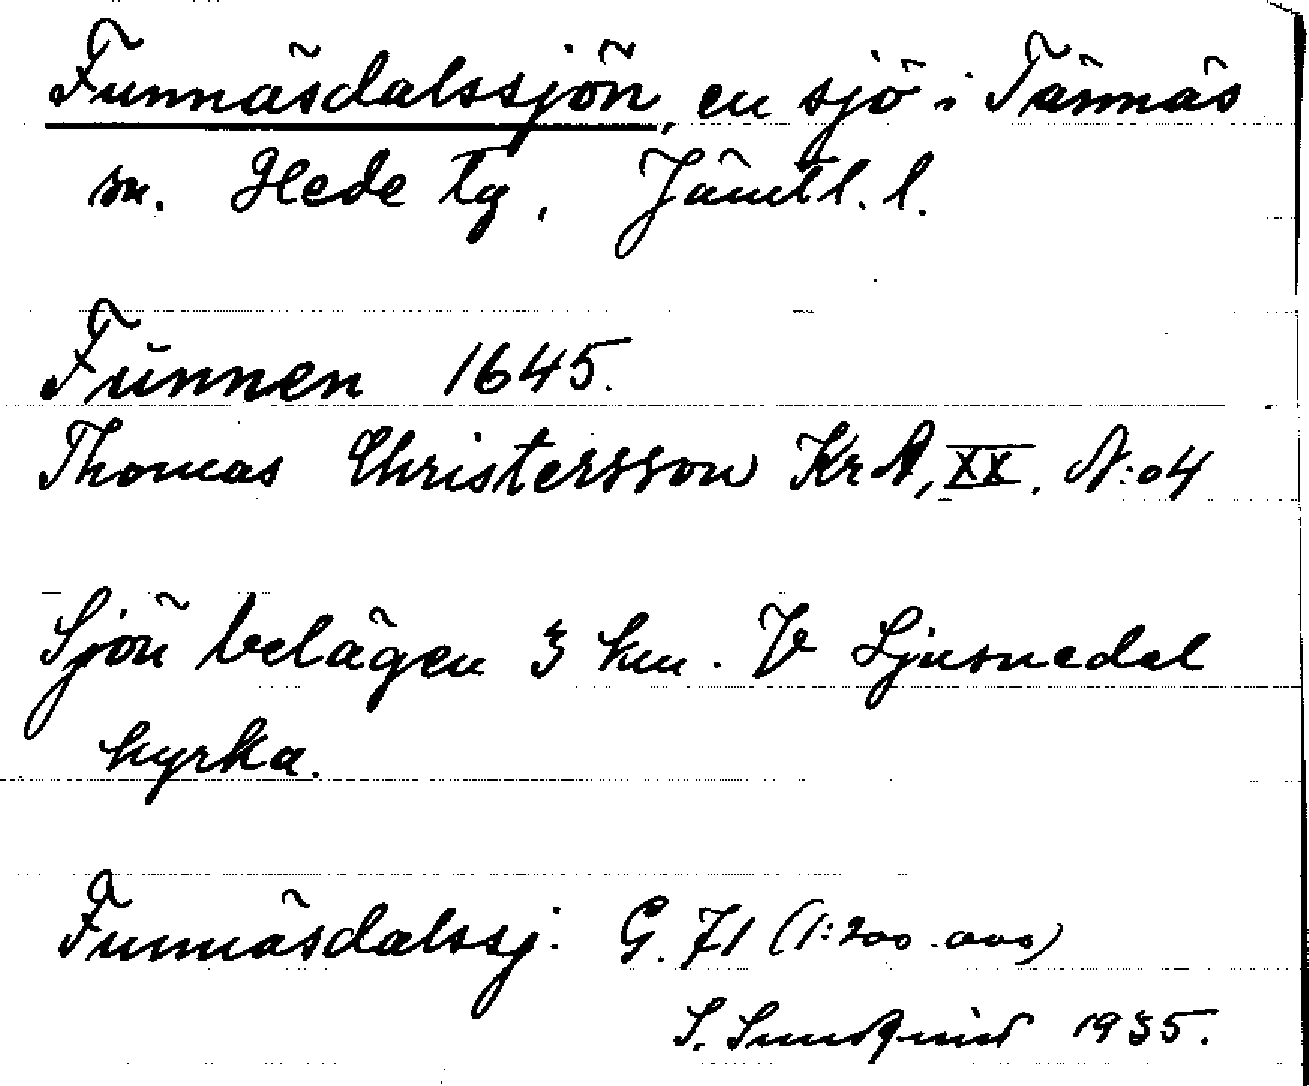 Funnäsdalssjön, en sjö i Tännäs
sn. Hede tg, Jämtl. l.
Funnen 1645.
Thomas Christersson KrA, XX. N:o4
Sjön belägen 3 km. V Ljusnedal
kyrka.
Funnäsdalssj. G. 71 (1:200.000)
S. Sundqvist 1935.